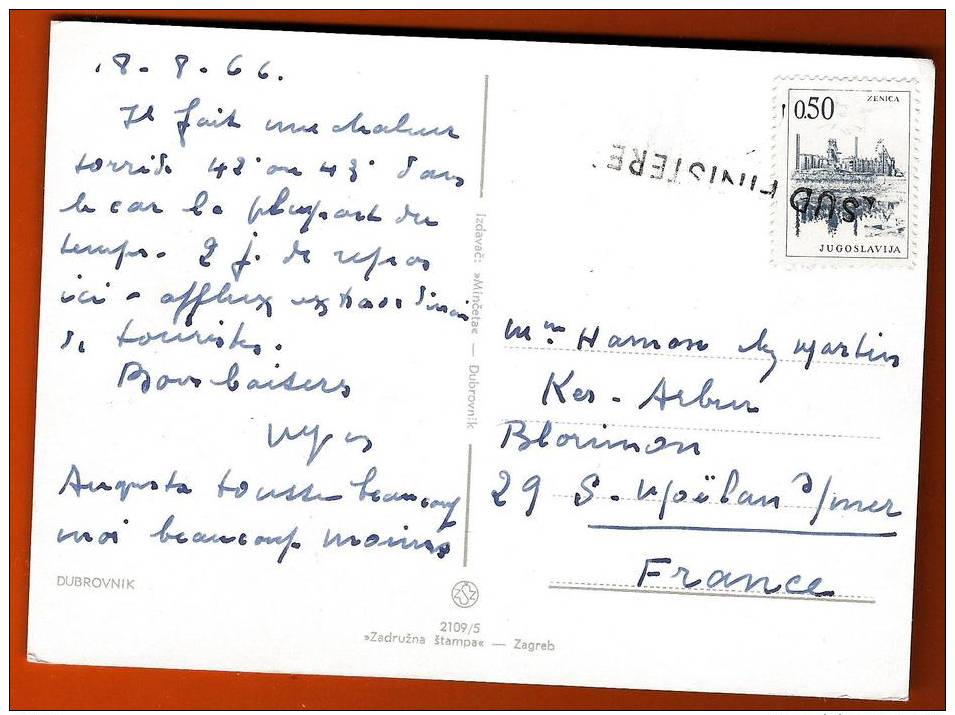 8-8-66.
Il fait une chaleur
torride 42° ou 43° dans
le car la plupart du
temps. 2 j. de repos
ici - afflux
de touristes.
Bons baisers
Augusta tousse beaucoup
moi beaucoup moins
DUBROVNIK
Izdavač: »Minčeta« — Dubrovnik
2109/5
»Zadružna štampa« — Zagreb
FINISTERE
SUD
0.50
ZENICA
JUGOSLAVIJA
Mme Hamon
Ker-
29 S. Moëlan s/mer
France